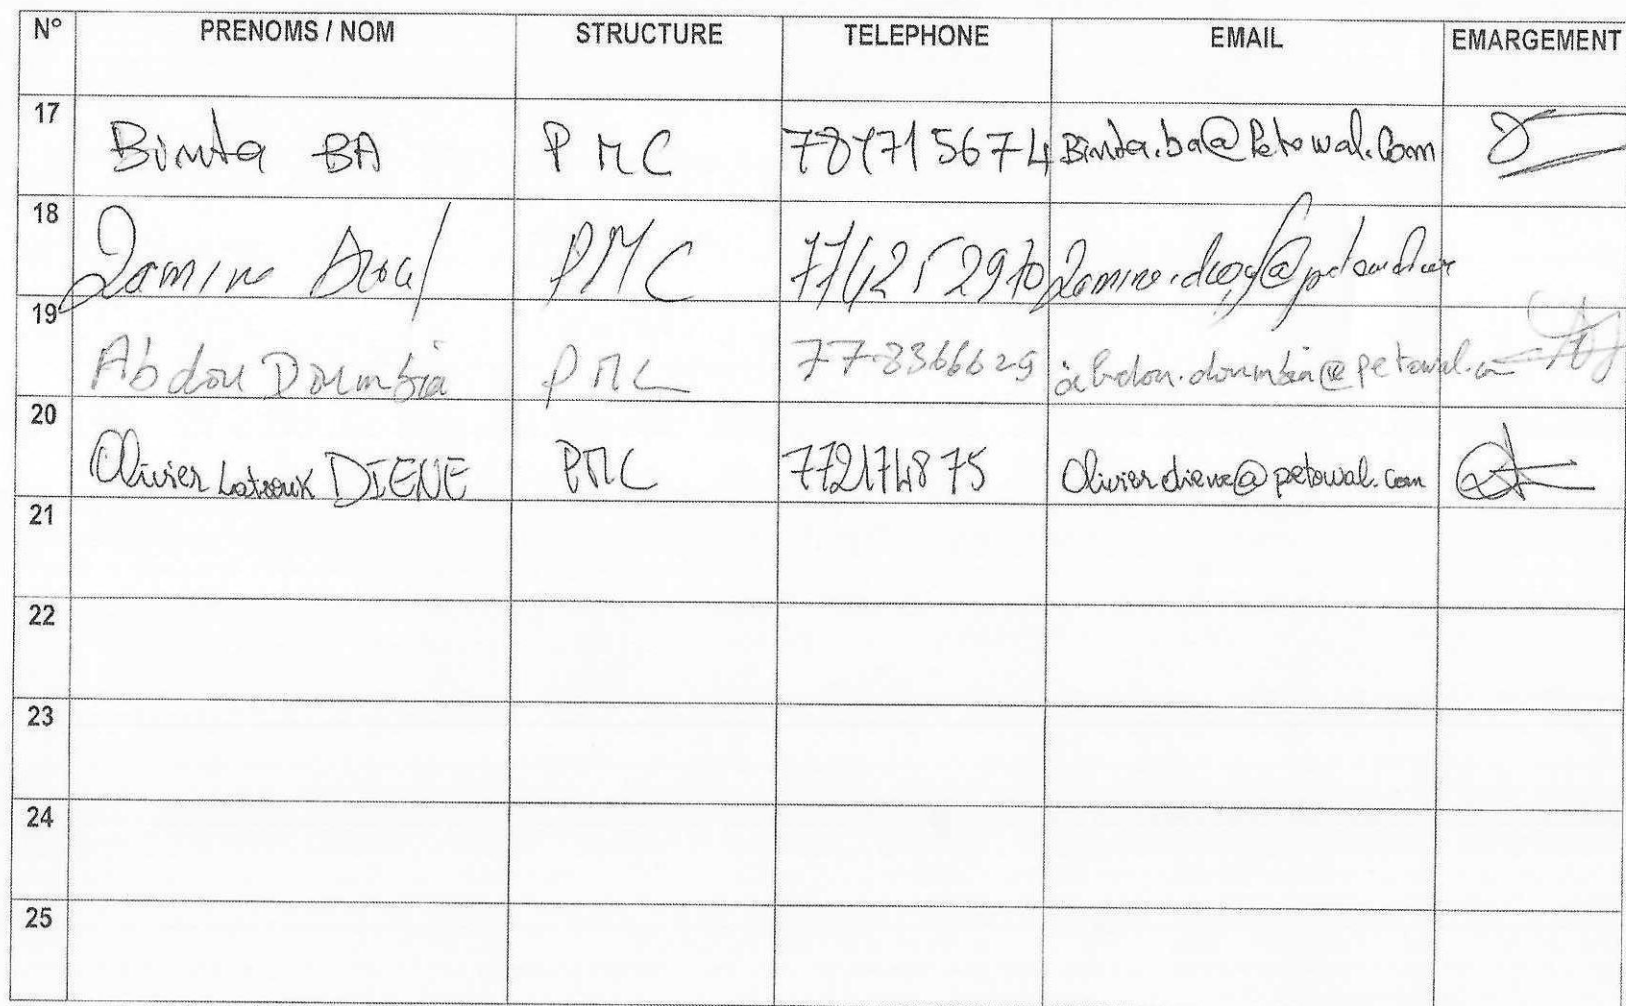 N° PRENOMS / NOM STRUCTURE TELEPHONE EMAIL EMARGEMENT
17 Binta BA PMC 787715674 Binta.ba@Petowal.Com
18 Lamine PMC
19 Abdou Doumbia PMC 778366629 abdou.doumbia@petowal.
20 Olivier DIENE PMC 772174875 Olivier diene@petowal.com
21
22
23
24
25